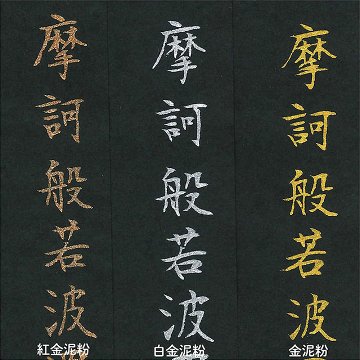 摩訶般若波
摩訶般若波
摩訶般若波
紅金泥粉
白金泥粉
金泥粉